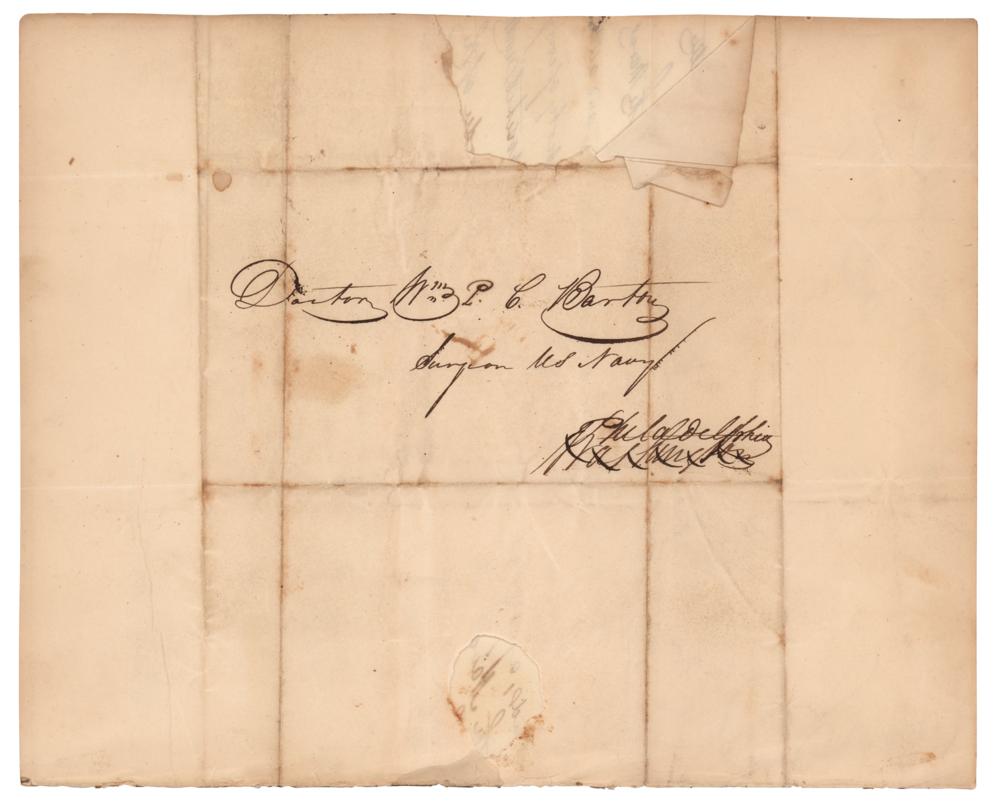 Doctor Wm P. C. Barton
Surgeon US Navy
Philadelphia
Washington